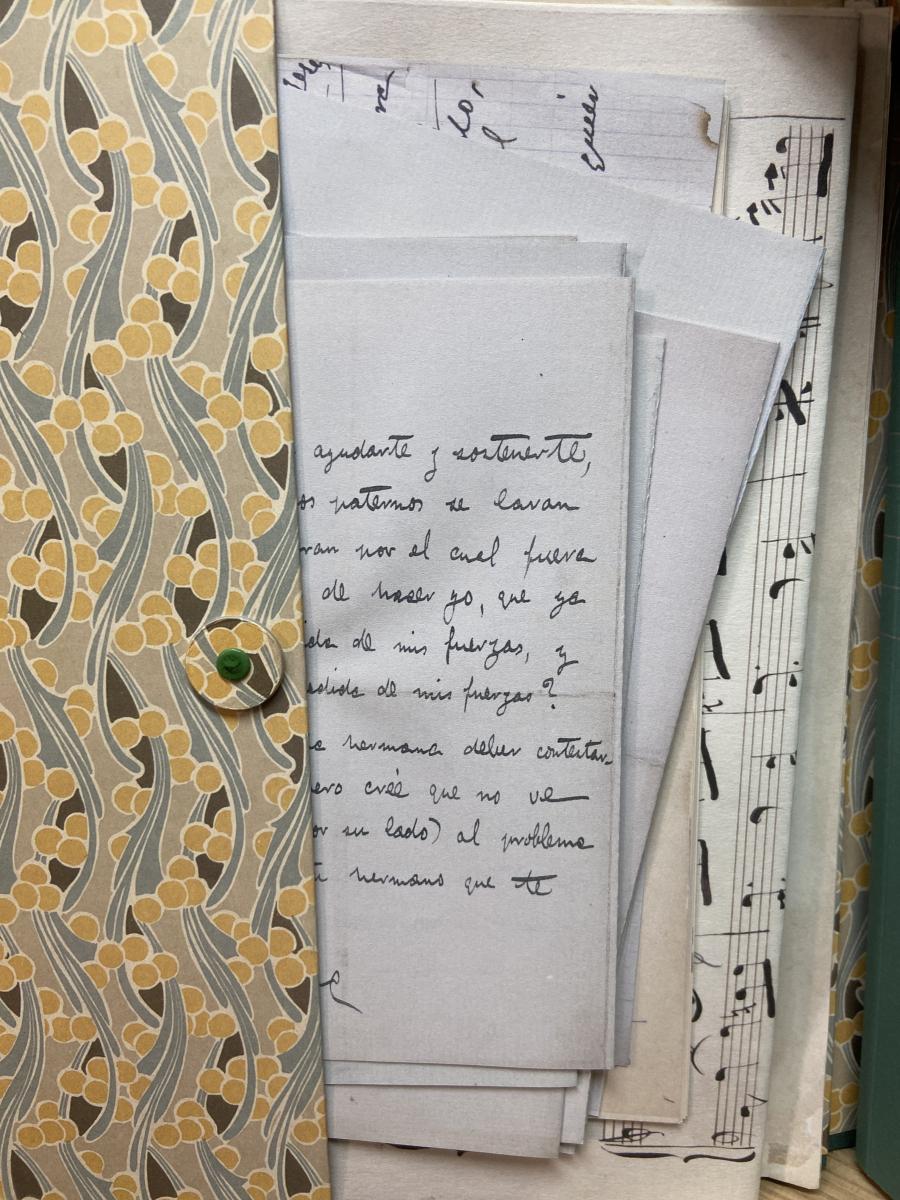 ayudarte y sostenerte,
os paternos se lavan
ran por el cual fuera
de hacer yo, que ya
ida de mis fuerzas, y
edida de mis fuerzas?
a hermana deber contestar
ero créé que no ve
or su lado) al problema
hermano que te